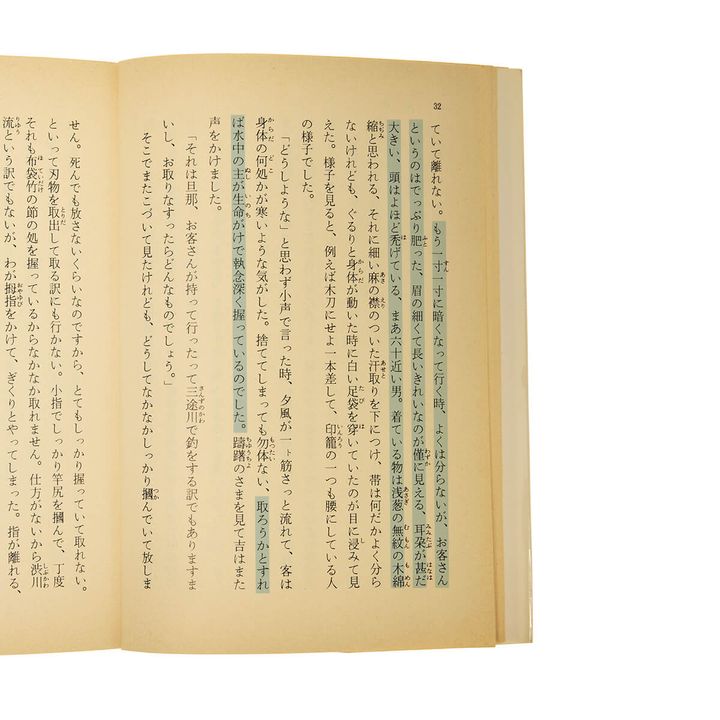 32
ていて離れない。もう一寸一寸に暗くなって行く時、よくは分らないが、お客さん
というのはでっぷり肥った、眉の細くて長いきれいなのが僅に見える、耳朶が甚だ
大きい、頭はよほど禿げている、まあ六十近い男。着ている物は浅葱の無紋の木綿
縮と思われる、それに細い麻の襟のついた汗取りを下につけ、帯は何だかよく分ら
ないけれども、ぐるりと身体が動いた時に白い足袋を穿いていたのが目に浸みて見
えた。様子を見ると、例えば木刀にせよ一本差して、印籠の一つも腰にしている人
の様子でした。
「どうしような」と思わず小声で言った時、夕風が一ト筋さっと流れて、客は
身体の何処かが寒いような気がした。捨ててしまっても勿体ない、取ろうかとすれ
ば水中の主が生命がけで執念深く握っているのでした。躊躇のさまを見て吉はまた
声をかけました。
「それは旦那、お客さんが持って行ったって三途川で釣をする訳でもありますま
いし、お取りなすったらどんなものでしょう。」
そこでまたこづいて見たけれども、どうしてなかなかしっかり摑んでいて放しま
せん。死んでも放さないくらいなのですから、とてもしっかり握っていて取れない。
といって刃物を取出して取る訳にも行かない。小指でしっかり竿尻を摑んで、丁度
それも布袋竹の節の処を握っているからなかなか取れません。仕方がないから渋川
流という訳でもないが、わが拇指をかけて、ぎくりとやってしまった。指が離れる、